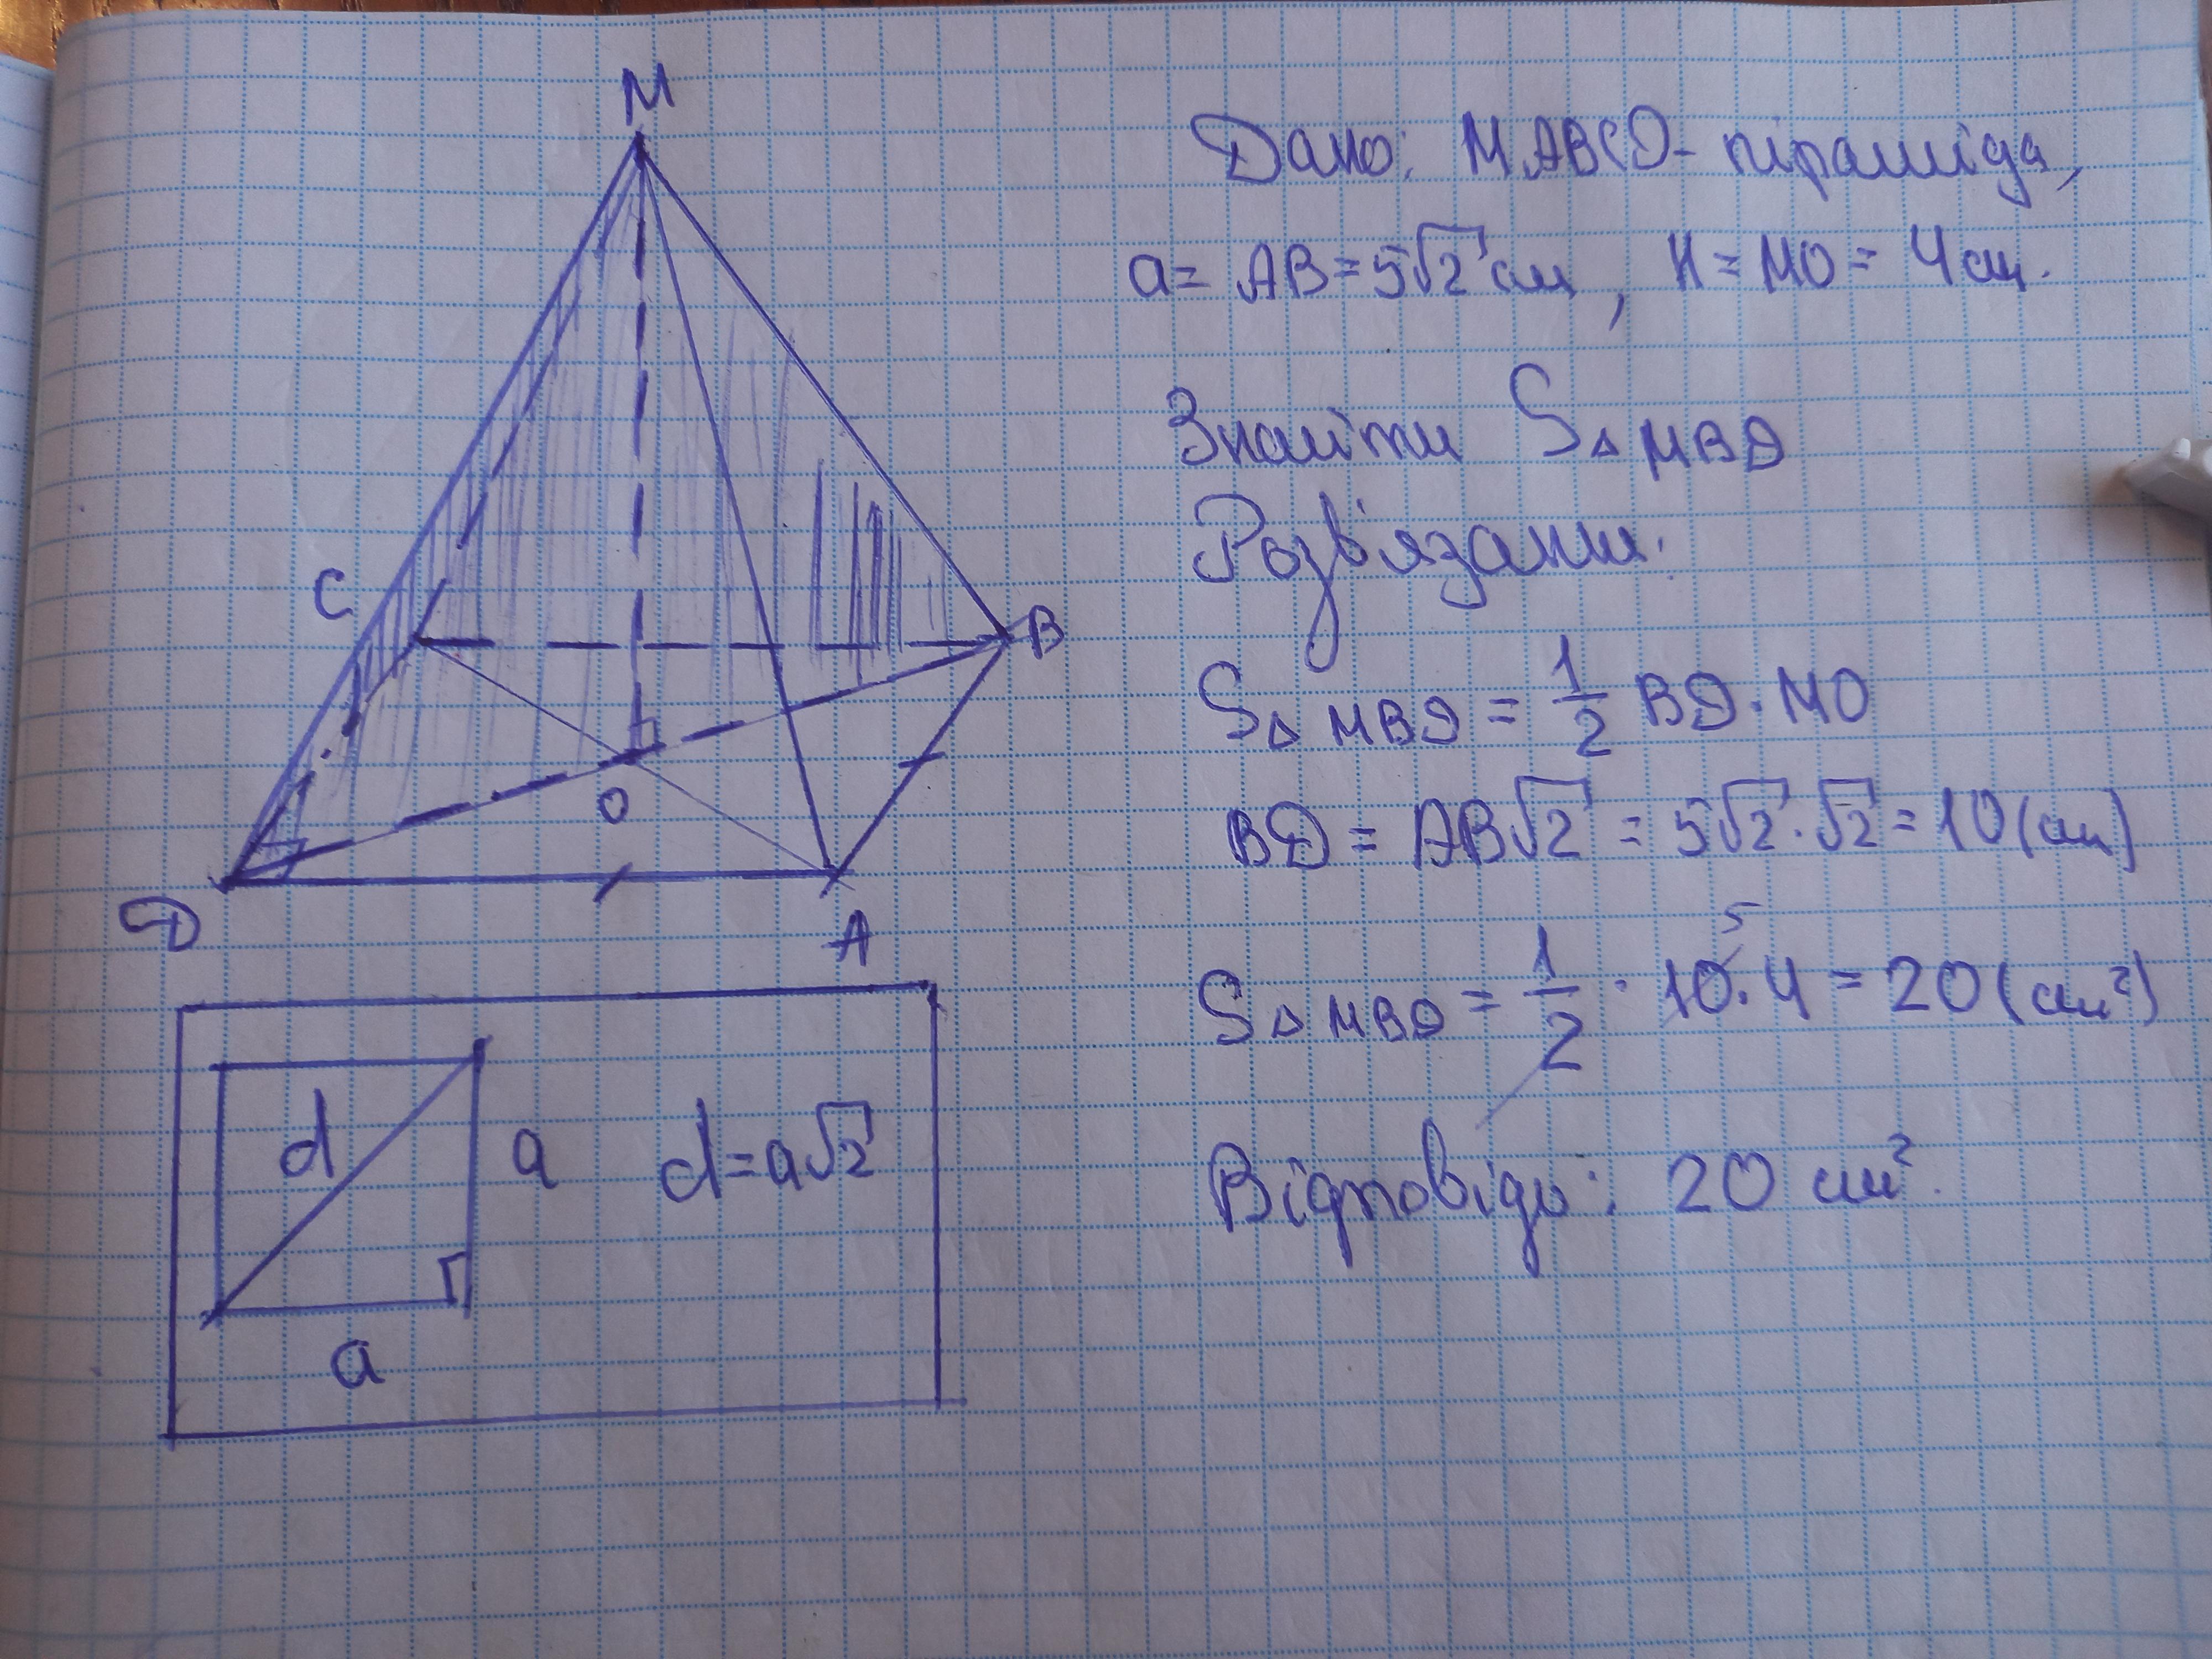 M
C
B
O
D
A
d
a
d=a√2
a
Дано: MABCD - піраміда,
a = AB = 5√2 см, H = MO = 4 см.
Знайти S△MBD
Розв'язання:
S△MBD = 1/2 BD · MO
BD = AB√2 = 5√2 · √2 = 10 (см)
5
S△MBD = 1/2 · 10 · 4 = 20 (см²)
Відповідь: 20 см².